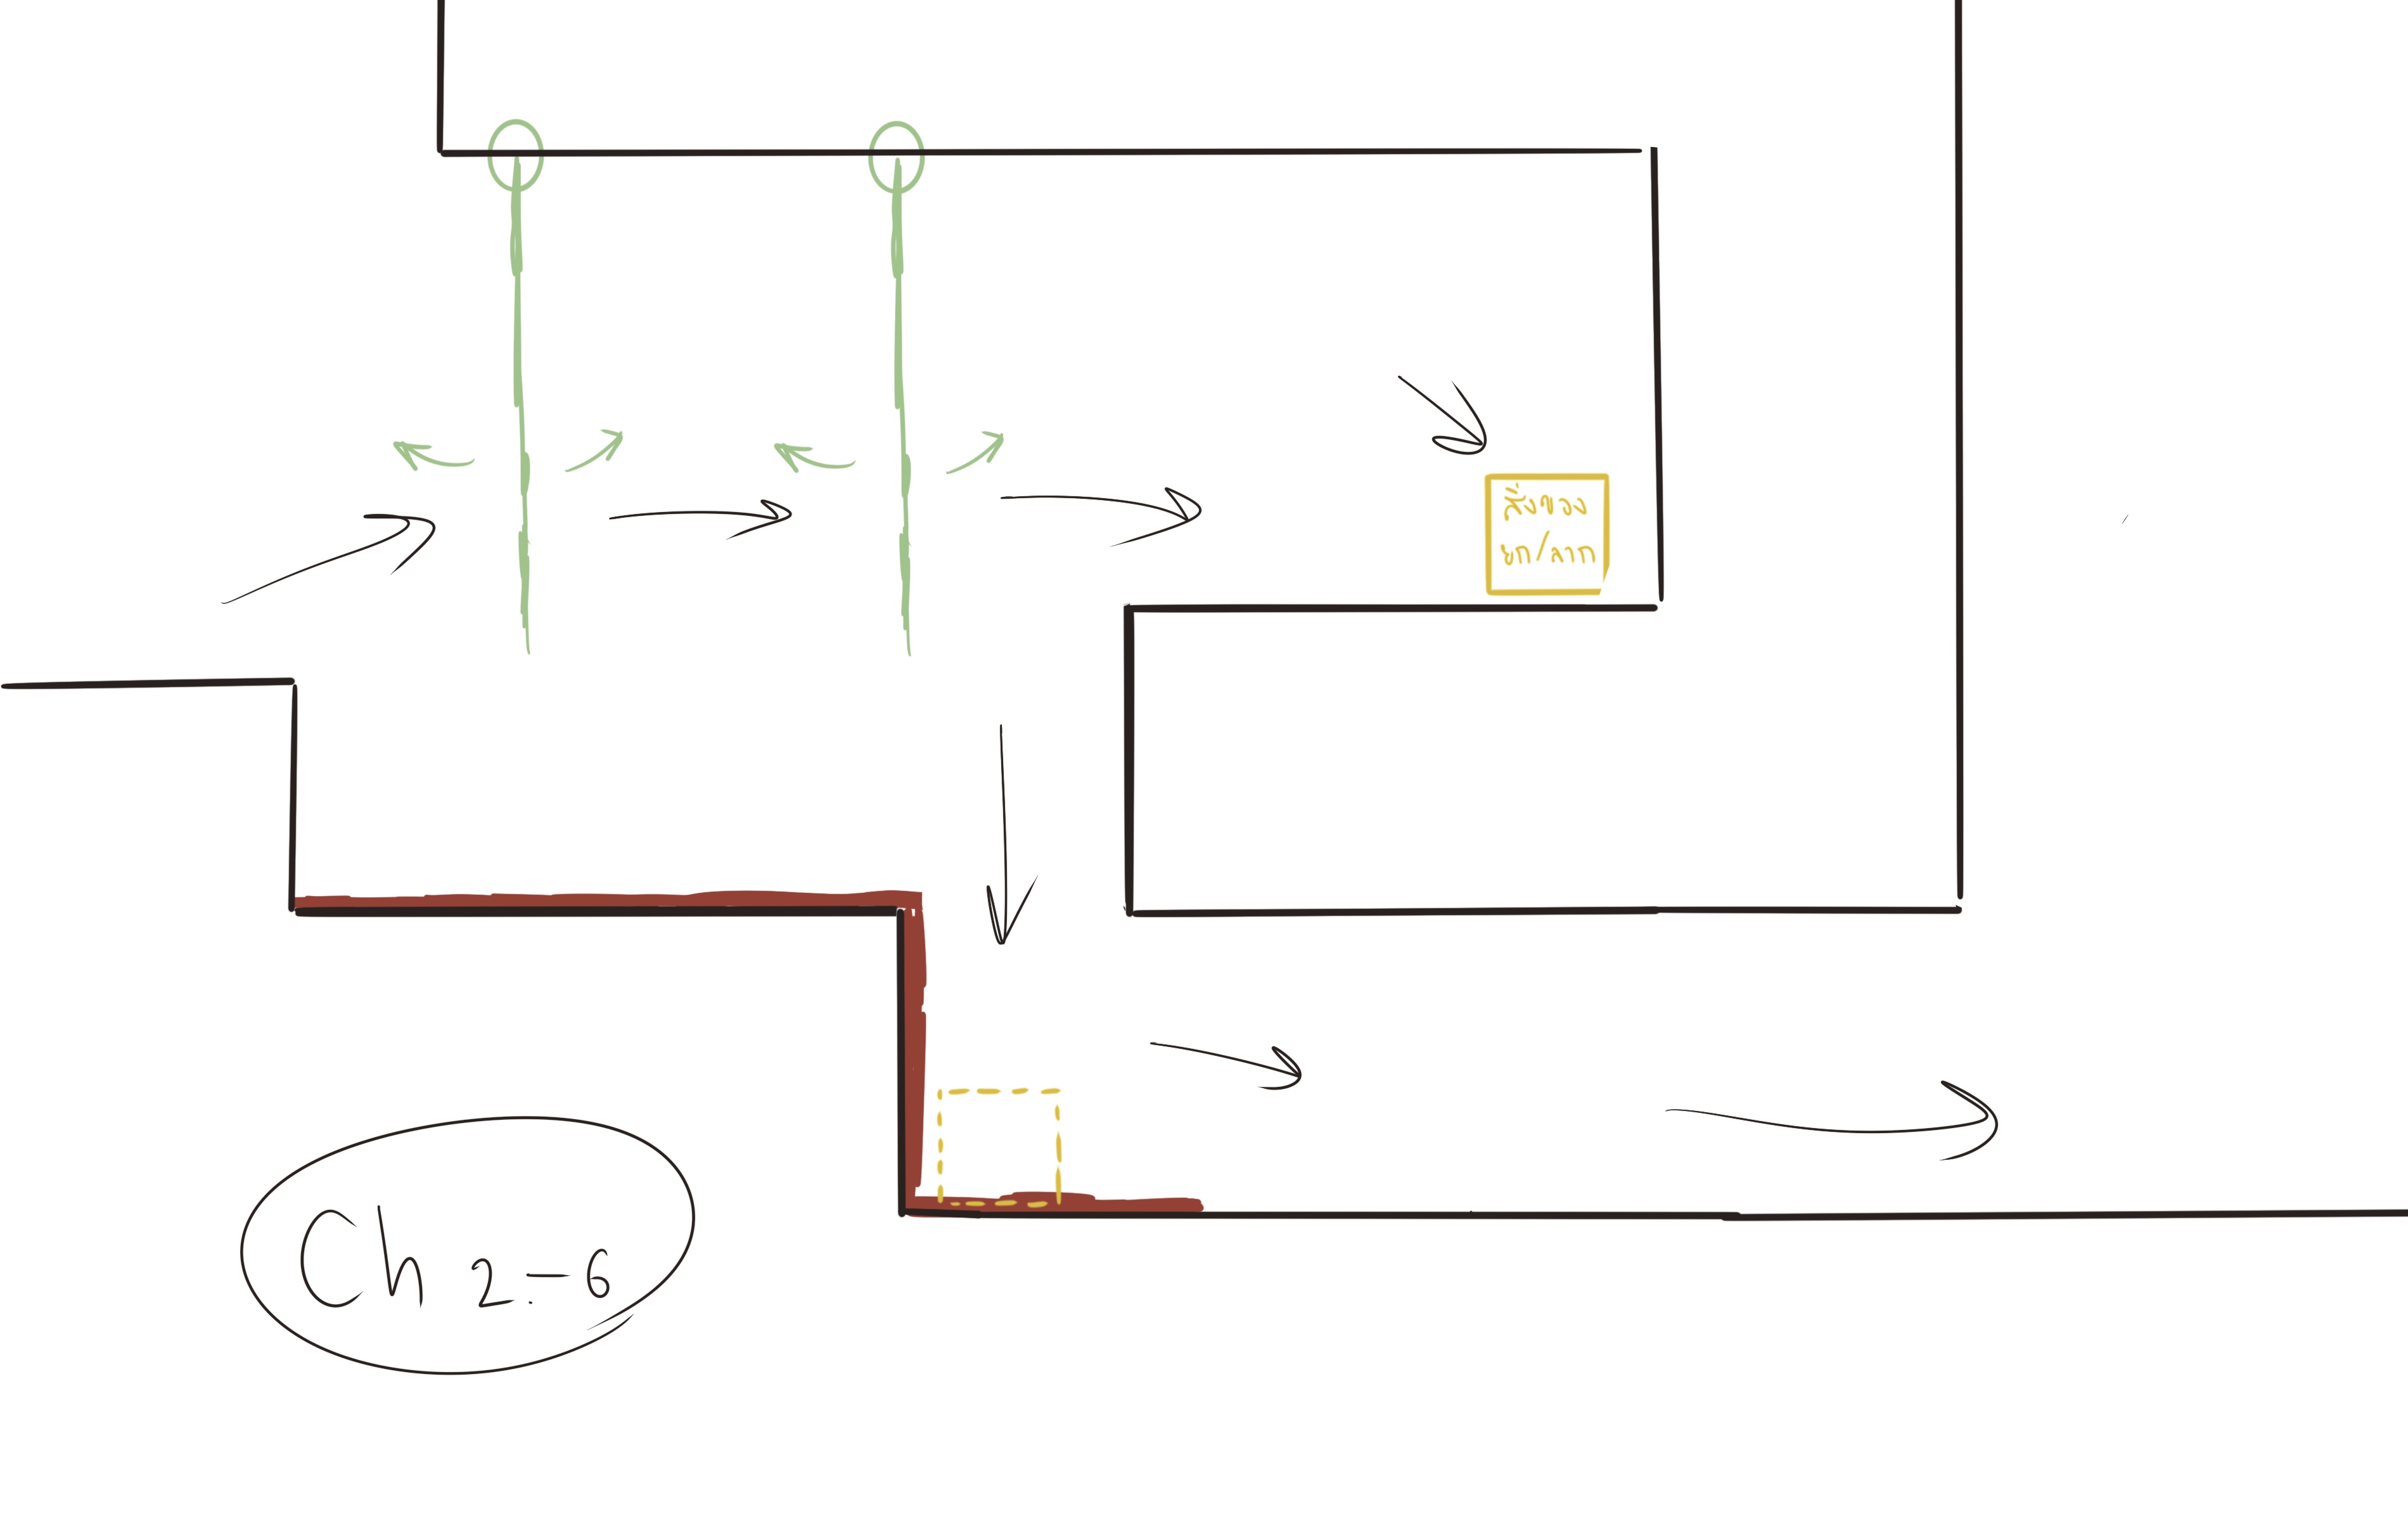 สิ่งของ
ผูก/ลาก
Ch 2-6